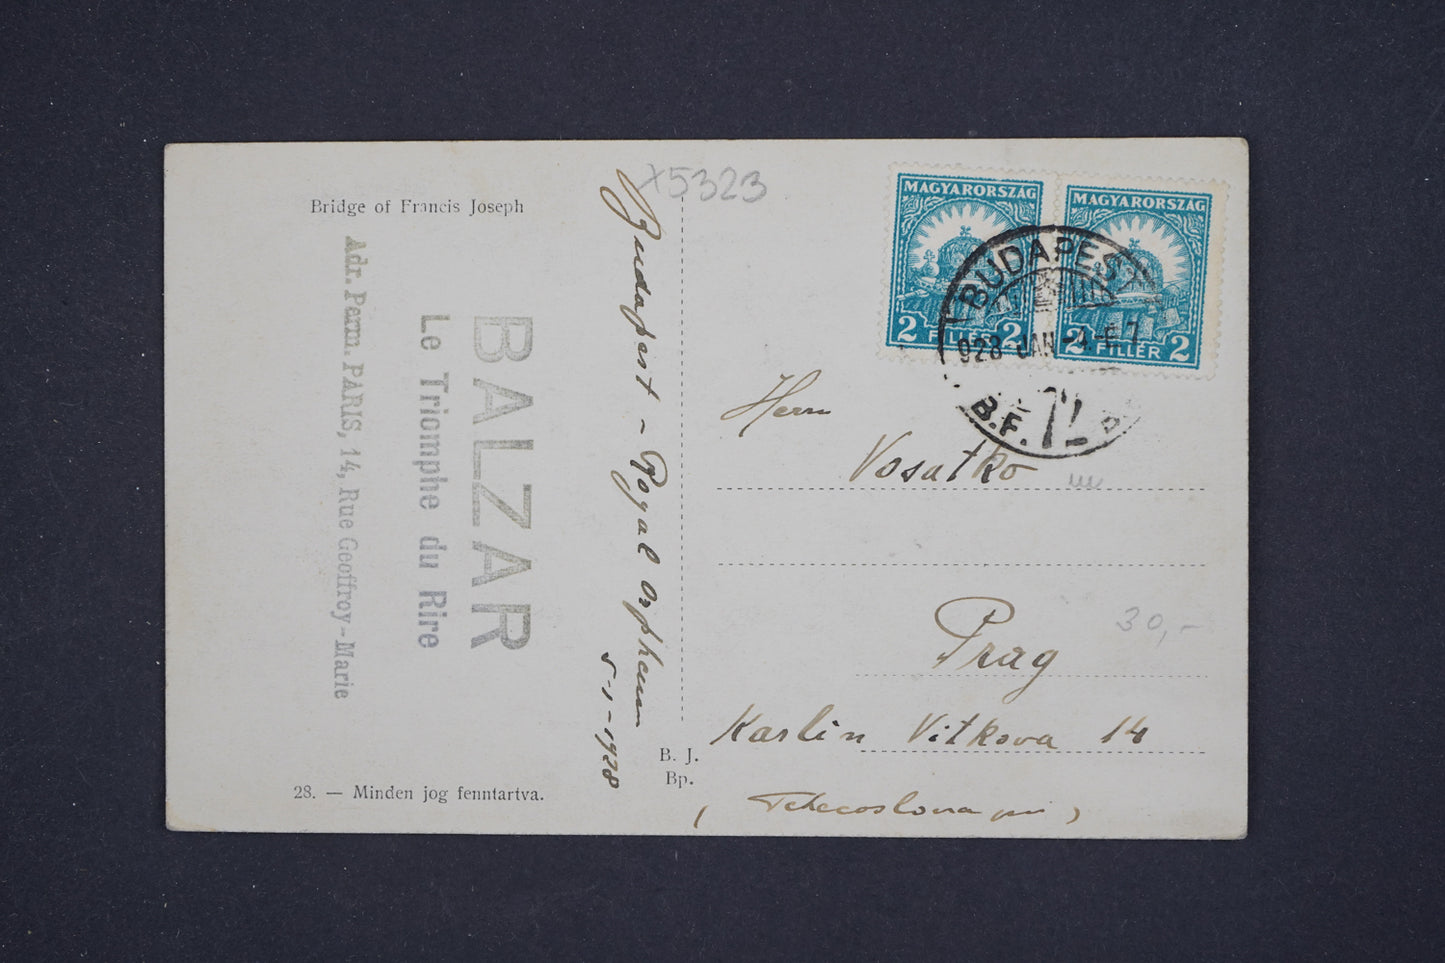 Bridge of Francis Joseph
BALZAR
Le Triomphe du Rire
Adr. Perm. PARIS, 14, Rue Geoffroy-Marie
28. — Minden jog fenntartva.
Budapest - Royal Orpheum
5-1-1928
X5323
B. J.
Bp.
MAGYARORSZÁG
2 FILLÉR 2
MAGYARORSZÁG
2 FILLÉR 2
BUDAPEST
928 JAN -4.-E 7
B.F.
Herrn
Vosatko
Prag
30,-
Karlin Vitkova 14